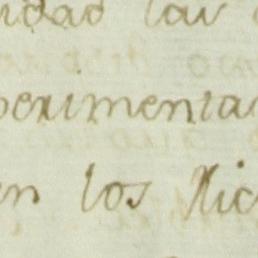 idad las
perimenta
en los Ric